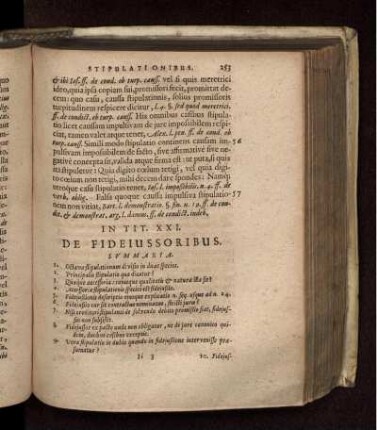 STIPULATIONIBUS. 253
& ibi Ias. ff. de cond. ob turp. causs. vel si quis meretrici
ideo, quia ipsa copiam sui, promissori fecit, promittat de-
cem: quo casu, caussa stipulationis, solius promissoris
turpitudinem respicere dicitur, l. 4. §. sed quod meretrici.
ff. de condict. ob turp. causs. His omnibus casibus stipula-
tio licet caussam impulsivam de jure impossibilem respi-
ciat, tamen valet atque tenet, Alex. l. pen. ff. de cond. ob
turp. causs. Simili modo stipulatio continens caussam im- 56
pulsivam impossibilem de facto, sive affirmative sive ne-
gative concepta sit, valida atque firma est: ut puta, si quis
ita stipuletur: Quia digito cœlum tetigi, vel quia digi-
to cœlum non tetigi, mihi decem dare spondes? Namq;
utroque casu stipulatio tenet, Ias. l. impossibilis. n. 4. ff. de
verb. oblig. Falsa quoque caussa impulsiva stipulatio- 57
nem non vitiat, part. l. demonstratio. §. fin. n. 10. ff. de con-
dit. & demonstrat. arg. l. damus. ff. de condict. indeb.
IN TIT. XXI.
DE FIDEIUSSORIBUS.
SUMMARIA.
1. Octava stipulationum divisio in duas species.
2. Principalis stipulatio quæ dicatur?
3. Quæque accessoria: eiusque qualitas & natura illa sit?
4. Accessoria stipulationis species est fideiussio.
5. Fideiussionis descriptio eiusque explicatio n. seq. usque ad n. 24.
6. Fideiussio cur sit contractus nominatus, stricti juris?
7. Nisi creditori stipulanti de solvendo debito promissio fiat, fidejus-
sio non subsistit.
8. Fidejussor ex pacto nudo non obligatur, ne de jure canonico qui-
dem, duobus casibus exceptis.
9. Vera stipulatio in dubio quando in fidejussione intervenisse præ-
sumatur?
Ii 3 10. Fidejus-